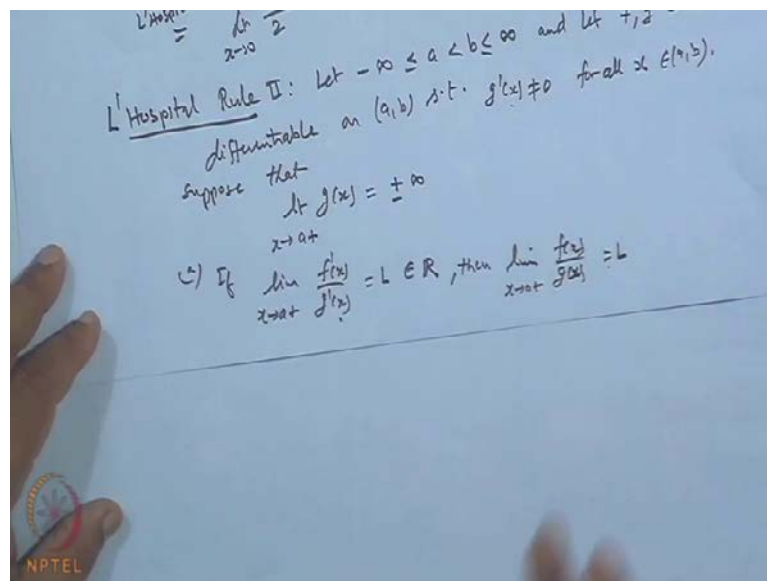 L'Hospi
= lim
x→0 2
L' Hospital Rule II: Let -∞ ≤ a < b ≤ ∞ and let f, g
differentiable on (a,b) s.t. g'(x) ≠ 0 for all x ∈ (a,b).
Suppose that
lt g(x) = ± ∞
x→a+
(a) If lim f'(x)/g'(x) = L ∈ R, then lim f(x)/g(x) = L
x→a+ x→a+
NPTEL